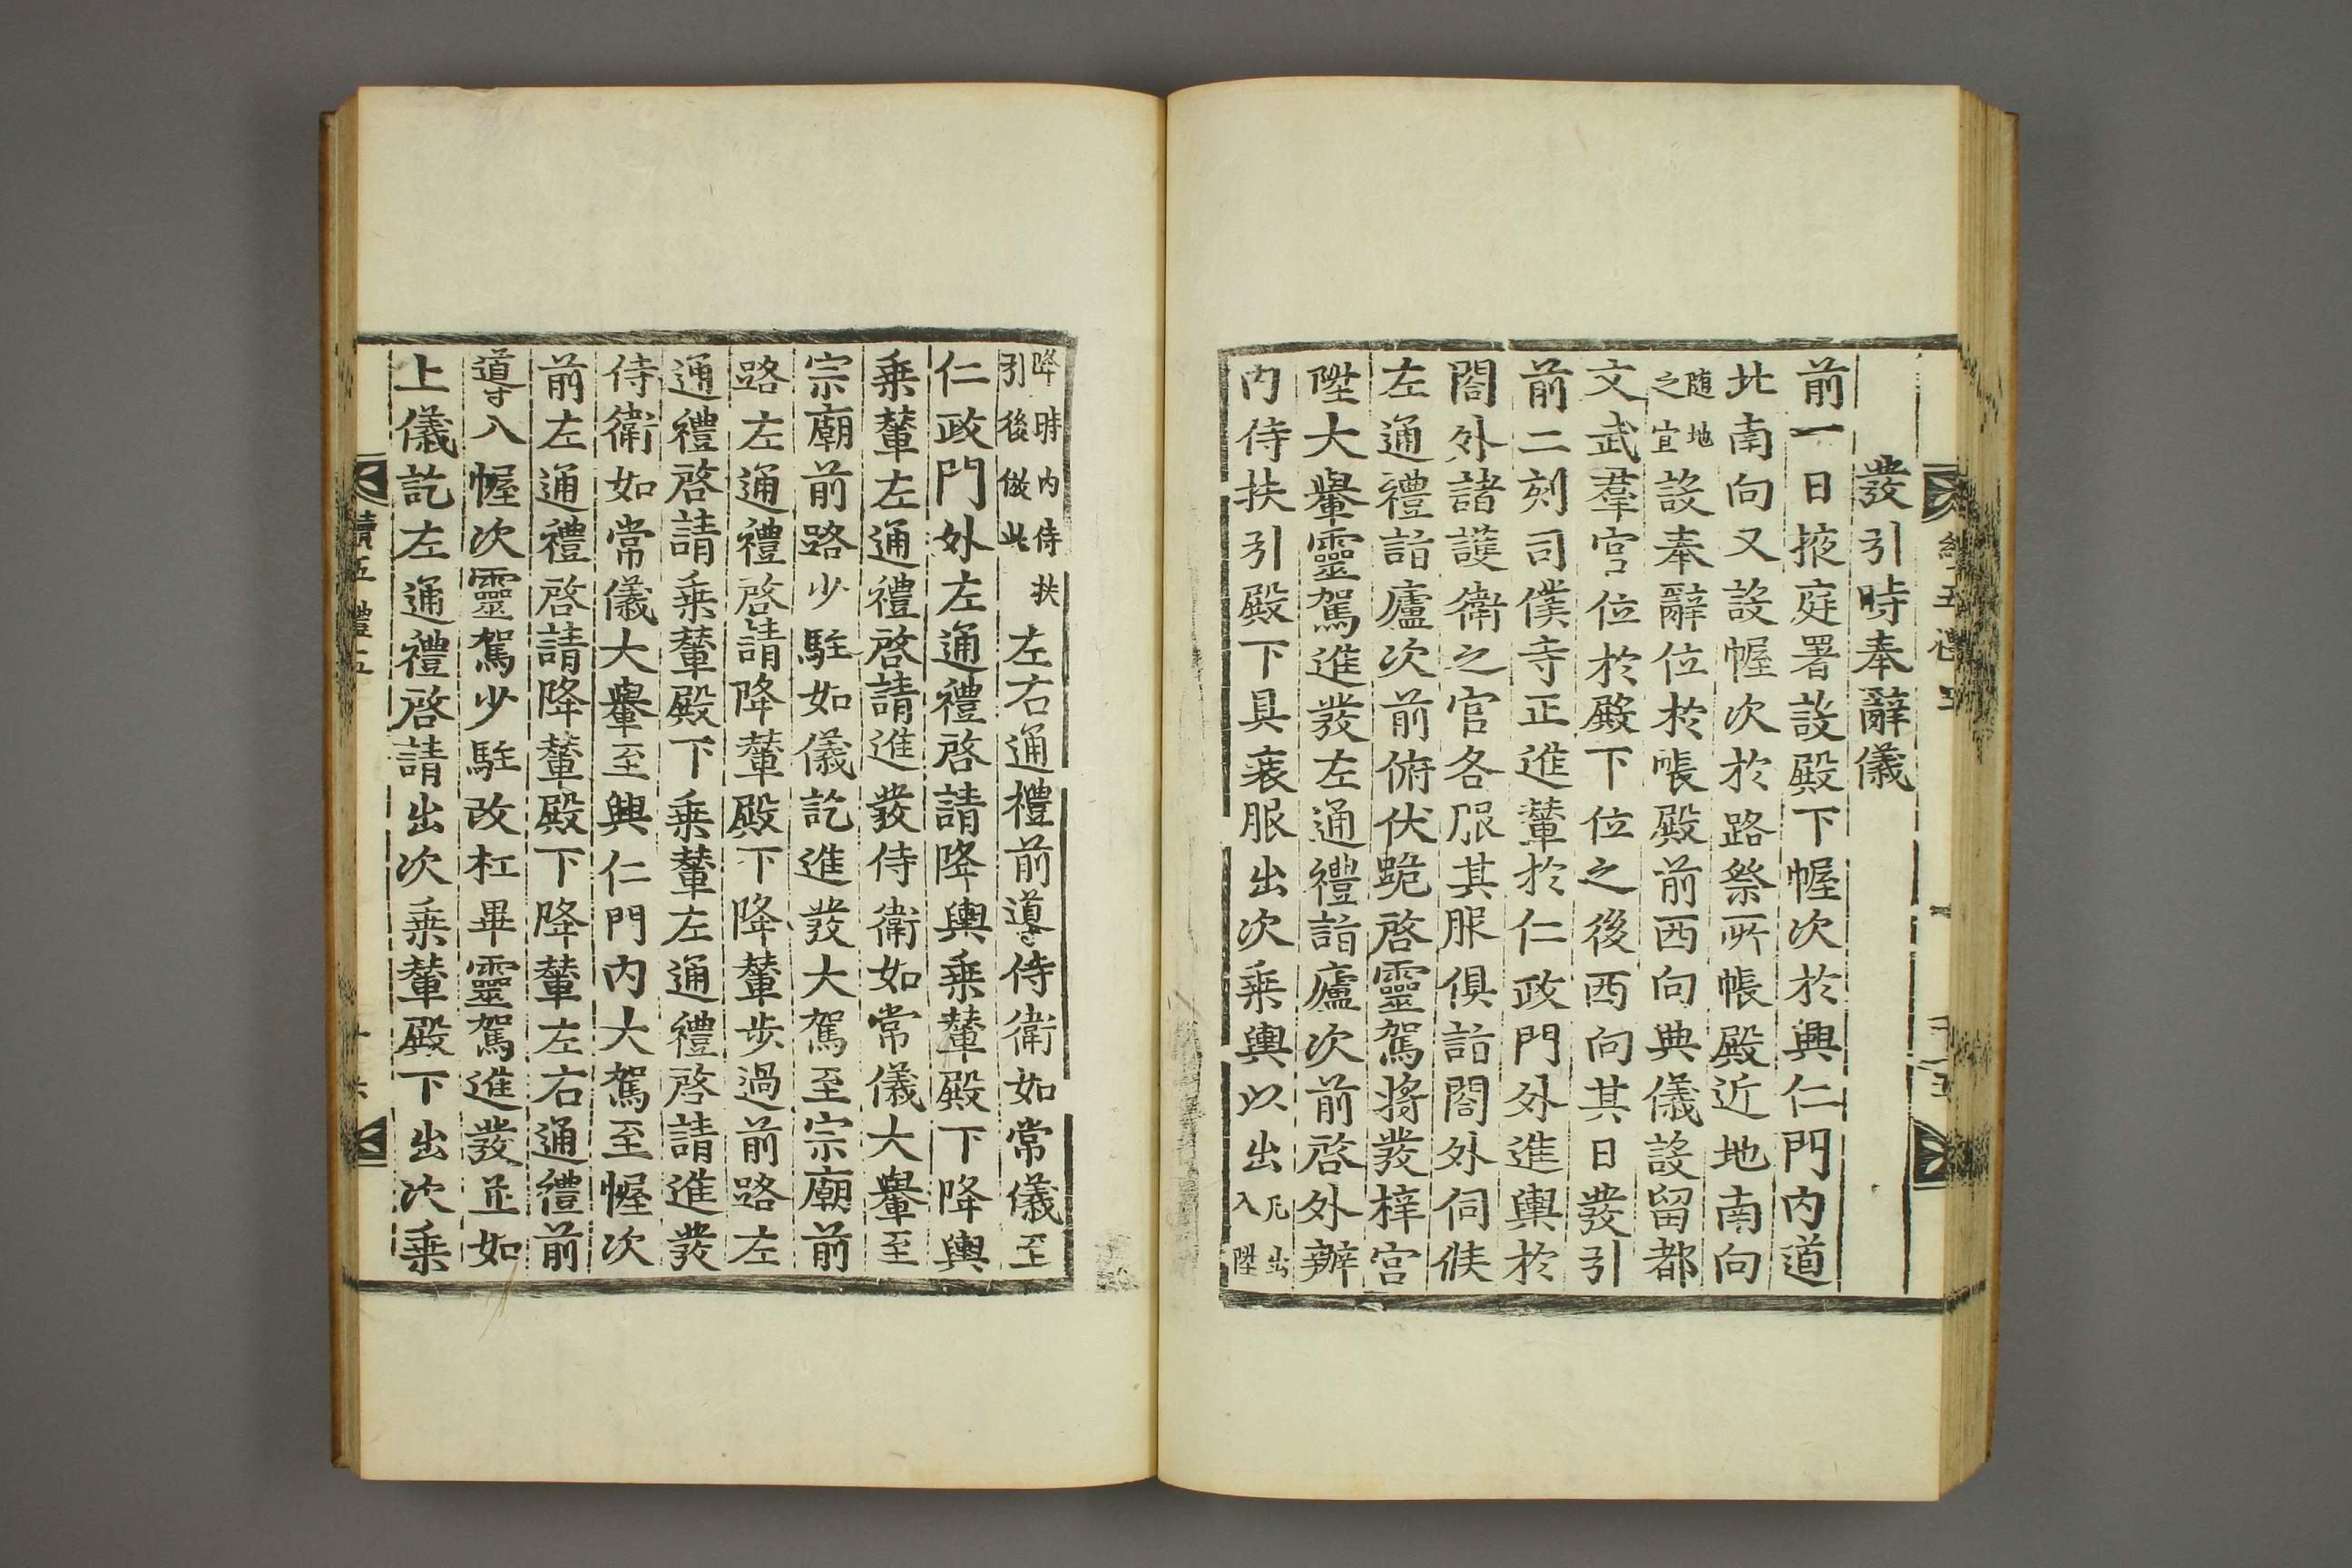 發引時奉辭儀
前一日掖庭署設殿下幄次於興仁門內道
北南向又設幄次於路祭所帳殿近地南向
隨地之宜設奉辭位於帳殿前西向典儀設留都
文武羣官位於殿下位之後西向其日發引
前二刻司僕寺正進輦於仁政門外進輿於
閤外諸護衛之官各服其服俱詣閤外伺候
左通禮詣廬次前俯伏跪啓靈駕將發梓宮
陞大轝靈駕進發左通禮詣廬次前啓外辦
內侍扶引殿下具衰服出次乘輿以出凡出入陞
降時內侍扶引後倣此左右通禮前導侍衛如常儀至
仁政門外左通禮啓請降輿乘輦殿下降輿
乘輦左通禮啓請進發侍衛如常儀大轝至
宗廟前路少駐如儀訖進發大駕至宗廟前
路左通禮啓請降輦殿下降輦步過前路左
通禮啓請乘輦殿下乘輦左通禮啓請進發
侍衛如常儀大轝至興仁門內大駕至幄次
前左通禮啓請降輦殿下降輦左右通禮前
導入幄次靈駕少駐改杠畢靈駕進發並如
上儀訖左通禮啓請出次乘輦殿下出次乘
續五禮五